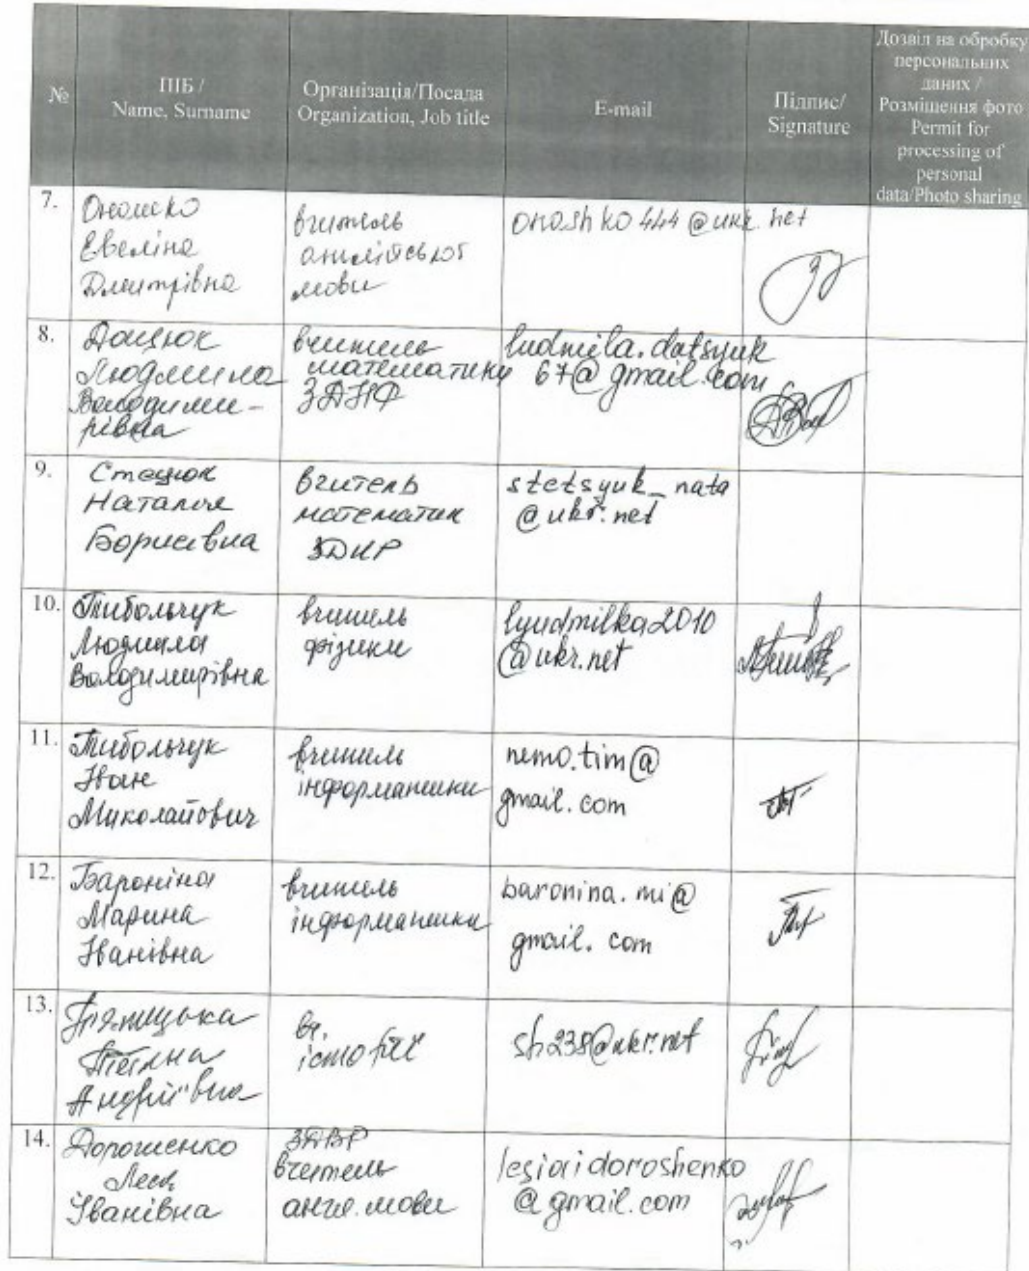 №
ПІБ /
Name, Surname
Організація/Посада
Organization, Job title
E-mail
Підпис/
Signature
Дозвіл на обробку
персональних
даних /
Розміщення фото
Permit for
processing of
personal
data/Photo sharing
7.
Оношко
Евеліна
Дмитрівна
вчитель
англійської
мови
onoshko444@ukr.net
8.
Дацюк
Людмила
Володими-
рівна
вчитель
математики
ludmila.datsyuk
67@gmail.com
9.
Стецюк
Наталія
Борисівна
вчитель
математик
ЗДНР
stetsyuk_nata
@ukr.net
10.
Тибольчук
Людмила
Володимирівна
вчитель
фізики
lyudmilka2010
@ukr.net
11.
Тибольчук
Іван
Миколайович
вчитель
інформатики
nemo.tim@
gmail.com
12.
Бароніна
Марина
Іванівна
вчитель
інформатики
baronina.mi@
gmail.com
13.
Андріївна
вч.
історії
sh238@ukr.net
14.
Дорошенко
Леся
Іванівна
ЗДВР
вчитель
англ. мови
lesiaidoroshenko
@gmail.com